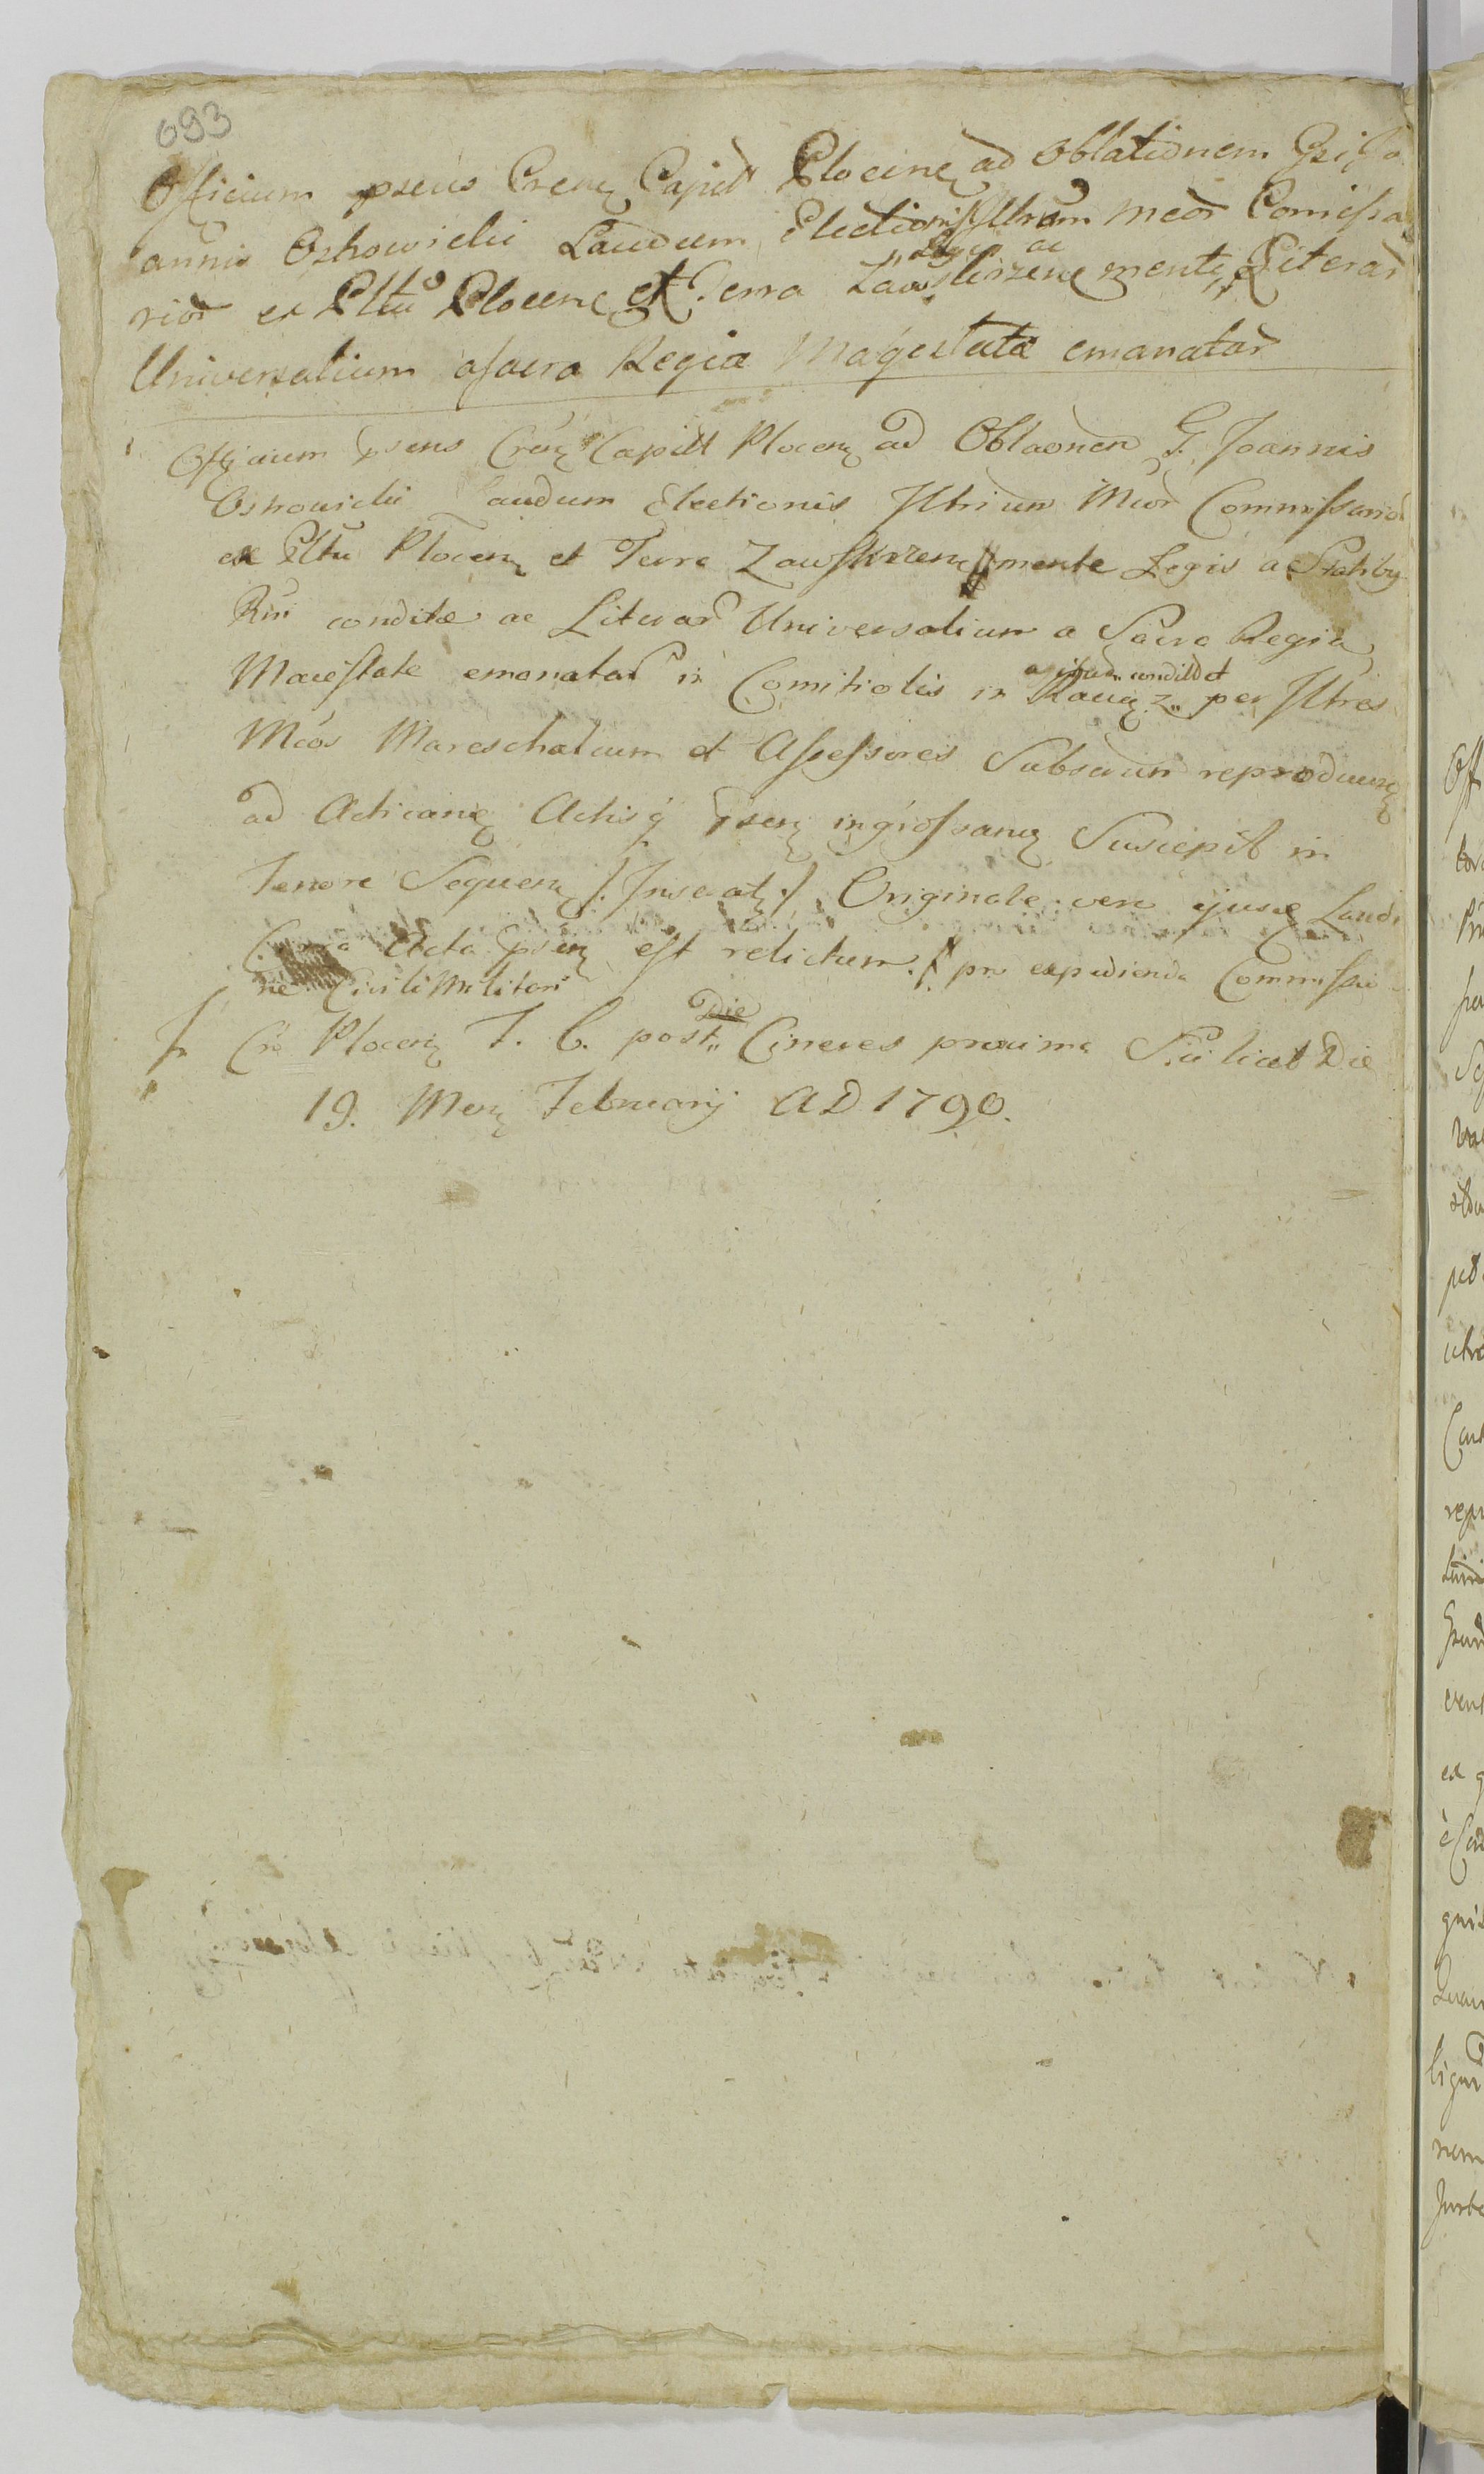 693
Officium psens Crens Capitt Plocens ad Oblationem Gsi Jo
annis Ostrowicki Laudum Electionis Illrium Mcor Comissa
Legis ac
rior ex Pltu Plocens et Terra Zawskrzens mente Literar
Universalium a Sacra Regia Magestate emanatar
Officium psens Crens Capitt Plocens ad Oblaonem G. Joannis
Ostrowicki Laudum Electionis Illrium Mcor Commissarior
ex Pltu Plocens et Terra Zawskrzens mente Legis a Statiby
Rni conditae ac Literar Universalium a Sacra Regia
Maiestate emanatar in Comitiolis in Raciąz per Illres
Mcos Mareschalcum et Assessores Subscriun reproducens
ad Acticand Actisq psens ingrossand Suscepit in
Tenore Sequens /: Inserat :/ Originale vero ejusd Laudi
Acta psens est relictum. pro expedienda Commissio
ne Civili Militari
Die
Cro Plocens F. 6. post Cineres proxima Scilicet Die
19. Mens Februarij AD 1790.